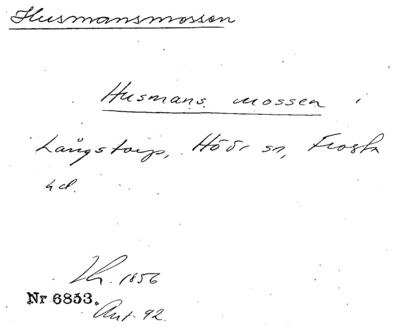 Husmansmossen
Husmans mossen i
Långstorp, Höör sn, Frosta
hd.
Lh. 1856
Nr 6853.
Ant. 92.